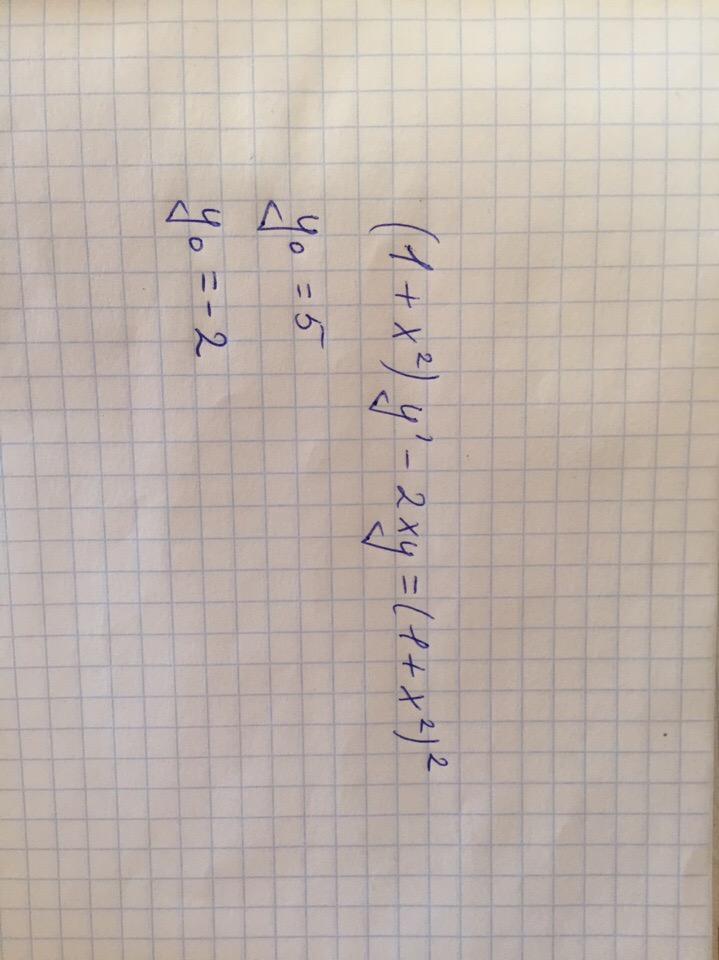 (1 + x²) y' - 2xy = (1 + x²)²
y₀ = 5
y₀ = -2